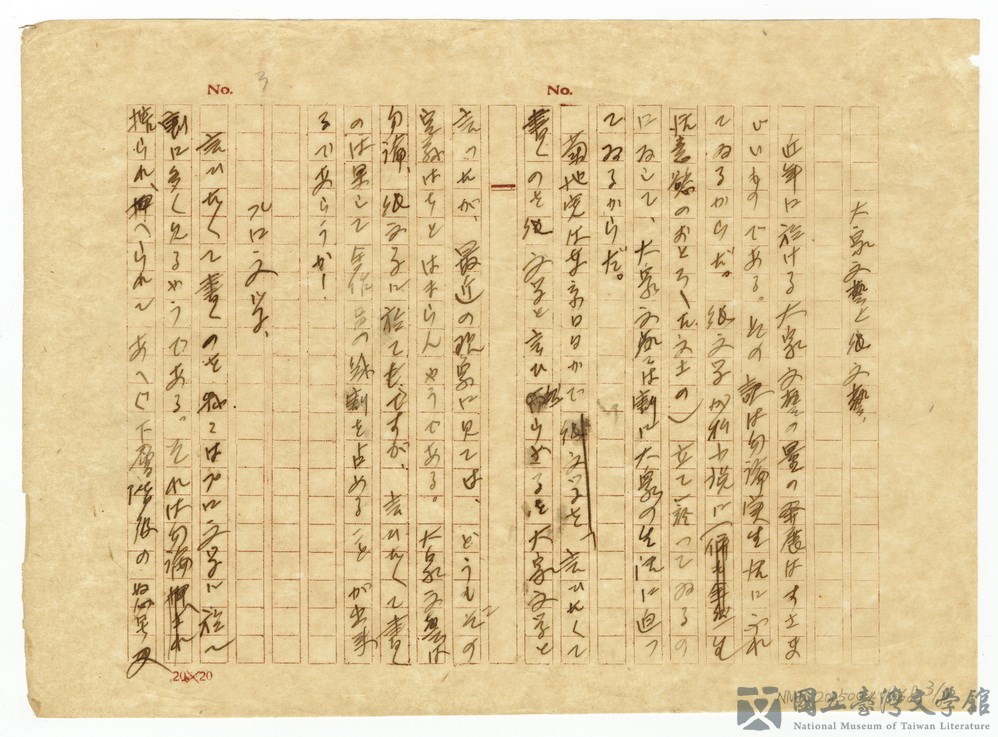 No. 3
No.
大衆文藝と純文藝、
近年に於ける大衆文藝の量の発展はすさま
じいものである。其の訳は勿論実生活にふれ
てゐるからだ。純文学が私小説に(生
活意慾のおとろへた文士の)立て籠ってゐるの
に反して、大衆文藝は割に大衆の生活に迫っ
てゐるからだ。
菊池寛は東京日日かで純文学を、言ひたくて
書くのを純文学と言ひ、大衆文学と
言ったが、最近の現象に見ては、どうもその
定義はちとはまらんやうである。大衆文藝は
勿論、純文学に於てもですが、言ひたくて書く
のは果して全作品の幾割を占めることが出来
るであらうか!
プロ文学、
言ひたくて書くのを我々はプロ文学に於て
割に多く見るやうである。それは勿論
搾られ、押へられてあへぐ下層階級の
20×20
國立臺灣文學館
National Museum of Taiwan Literature